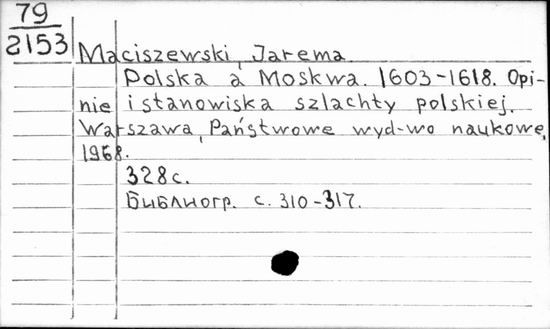 79
2153
Maciszewski, Jarema.
Polska a Moskwa. 1603-1618. Opi-
nie i stanowiska szlachty polskiej.
Warszawa, Państwowe wyd-wo naukowe,
1968.
328 с.
Библиогр. с. 310-317.